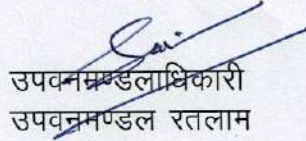 उपवनमण्डलाधिकारी
उपवनमण्डल रतलाम